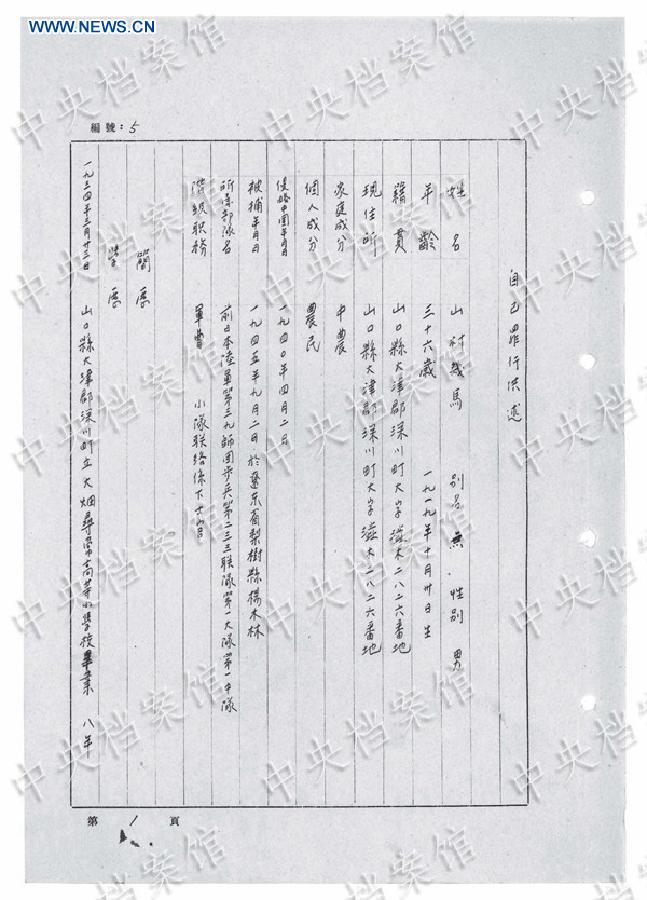 WWW.NEWS.CN
中央档案馆
編號：5
自己罪行供述
姓名 山村 馬 別名 無. 性別 男
年齡 三十六歲 一九一九年十月廿日生
籍貫 山口縣大津郡深川町大字 木二八二六番地
現住所 山口縣大津郡深川町大字 木二八二六番地
家庭成分 中農
個人成分 農民
侵略中國年月日 一九四〇年四月二日
被捕年月日 一九四五年九月二日於遼东省梨樹縣楊木林
所屬部隊名 前日本陸軍第三九師団步兵第二三三联隊第一大隊第一中隊
階級职務 軍曹 小隊联絡係下士官
簡歷
學歷
一九三四年三月廿三日 山口縣大津郡深川町立大畑尋常高等小學校畢業 八年
第 1 頁